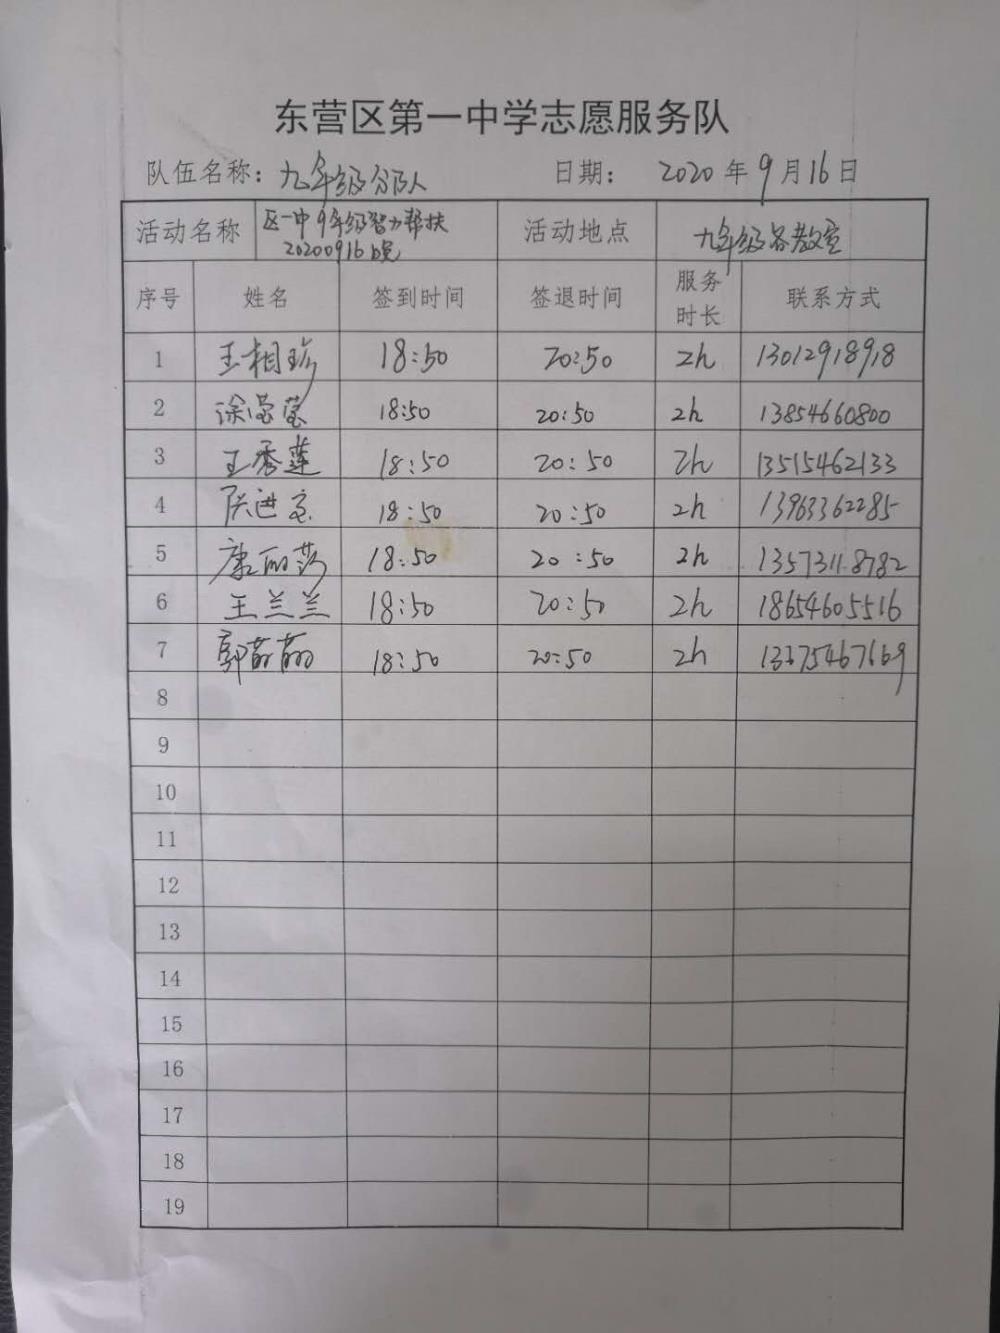 东营区第一中学志愿服务队
队伍名称：九年级分队 日期： 2020年9月16日
活动名称 区一中9年级智力帮扶 20200916晚 活动地点 九年级各教室
序号 姓名 签到时间 签退时间 服务时长 联系方式
1 王相珍 18:50 20:50 2h 13012918918
2 18:50 20:50 2h 13854660800
3 王秀莲 18:50 20:50 2h 13515462133
4 18:50 20:50 2h 13963362285
5 康丽萍 18:50 20:50 2h 13573118782
6 王兰兰 18:50 20:50 2h 18654605516
7 郭 18:50 20:50 2h
8
9
10
11
12
13
14
15
16
17
18
19